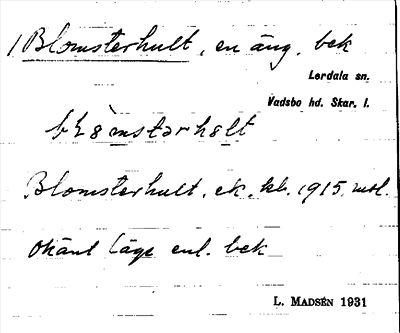 1 Blomsterhult, en äng. bek
Lerdala sn.
Vadsbo hd. Skar. l.
Blomsterhult, ek. kb. 1915. mtl.
Okänt läge enl. bek
L. MADSÉN 1931